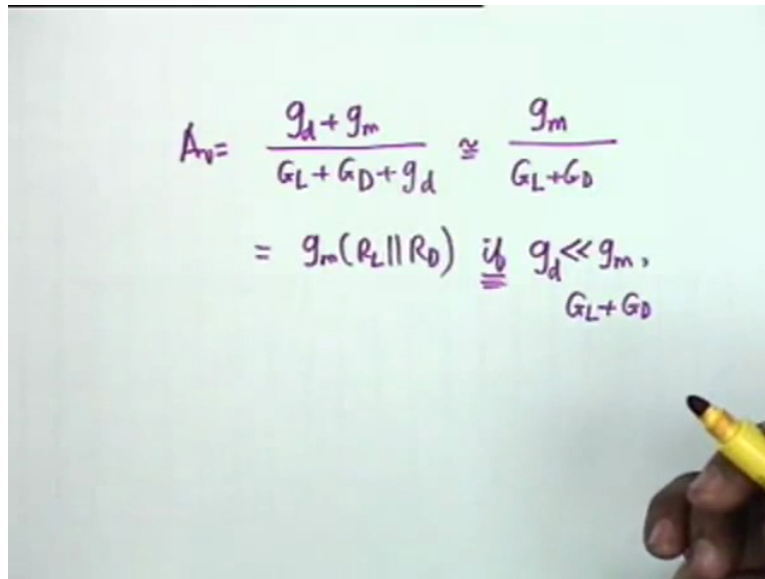 Av = (gd + gm) / (GL + GD + gd) ≅ gm / (GL + GD)
= gm (RL || RD) if gd << gm,
GL + GD